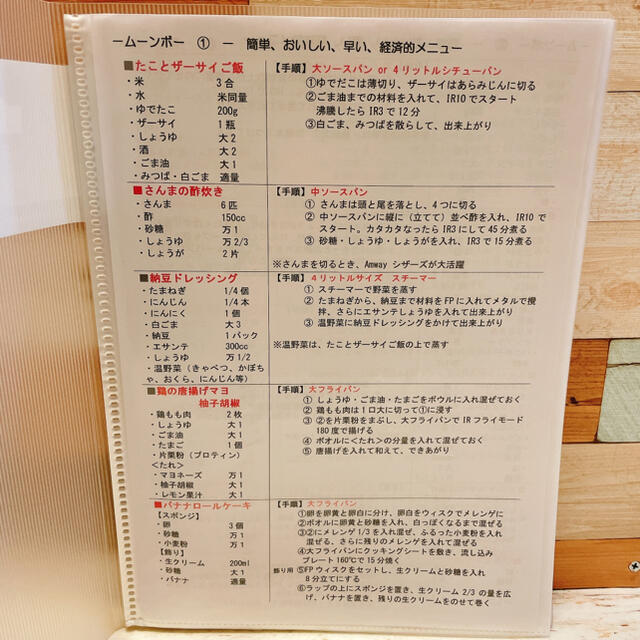 －ムーンボー ① － 簡単、おいしい、早い、経済的メニュー
■たことザーサイご飯
・米 3合
・水 米同量
・ゆでたこ 200g
・ザーサイ 1瓶
・しょうゆ 大2
・酒 大2
・ごま油 大1
・みつば・白ごま 適量
【手順】大ソースパン or 4リットルシチューパン
①ゆでだこは薄切り、ザーサイはあらみじんに切る
②ごま油までの材料を入れて、IR10でスタート
沸騰したらIR3で12分
③白ごま、みつばを散らして、出来上がり
■さんまの酢炊き
・さんま 6匹
・酢 150cc
・砂糖 万1
・しょうゆ 万2/3
・しょうが 2片
【手順】中ソースパン
① さんまは頭と尾を落とし、4つに切る
② 中ソースパンに縦に（立てて）並べ酢を入れ、IR10で
スタート。カタカタなったらIR3にして45分煮る
③ 砂糖・しょうゆ・しょうがを入れ、IR3で15分煮る
※さんまを切るとき、Amway シザーズが大活躍
■納豆ドレッシング
・たまねぎ 1/4個
・にんじん 1/4本
・にんにく 1個
・白ごま 大3
・納豆 1パック
・エサンテ 300cc
・しょうゆ 万1/2
・温野菜（きゃべつ、かぼち
ゃ、おくら、にんじん等）
【手順】4リットルサイズ スチーマー
① スチーマーで野菜を蒸す
② たまねぎから、納豆まで材料をFPに入れてメタルで撹
拌、さらにエサンテしょうゆを入れて出来上がり
③ 温野菜に納豆ドレッシングをかけて出来上がり
※温野菜は、たことザーサイご飯の上で蒸す
■鶏の唐揚げマヨ
柚子胡椒
・鶏もも肉 2枚
・しょうゆ 大1
・ごま油 大1
・たまご 1個
・片栗粉（プロティン）
<たれ>
・マヨネーズ 万1
・柚子胡椒 大1
・レモン果汁 大1
【手順】大フライパン
① しょうゆ・ごま油・たまごをボウルに入れ混ぜておく
② 鶏もも肉は1口大に切って①に浸す
③ ②を片栗粉をまぶし、大フライパンでIRフライモード
180度で揚げる
④ ボオルに<たれ>の分量を入れて混ぜておく
⑤ 唐揚げを入れて和えて、できあがり
■バナナロールケーキ
【スポンジ】
・卵 3個
・砂糖 万1
・小麦粉 万1
【飾り】
・生クリーム 200ml
・砂糖 大1
・バナナ 適量
【手順】大フライパン
①卵を卵黄と卵白に分け、卵白をウィスクでメレンゲに
②ボオルに卵黄と砂糖を入れ、白っぽくなるまで混ぜる
③②にメレンゲ1/3を入れ混ぜ、ふるった小麦粉を入れ
混ぜる、さらに残りのメレンゲを入れて混ぜる
④大フライパンにクッキングシートを敷き、流し込み
プレート160℃で15分焼く
飾り用 ⑤FPウィスクをセットし、生クリームと砂糖を入れ
8分立てにする
⑥ラップの上にスポンジを置き、生クリーム2/3の量を広
げ、バナナを置き、残りの生クリームをのせて巻く